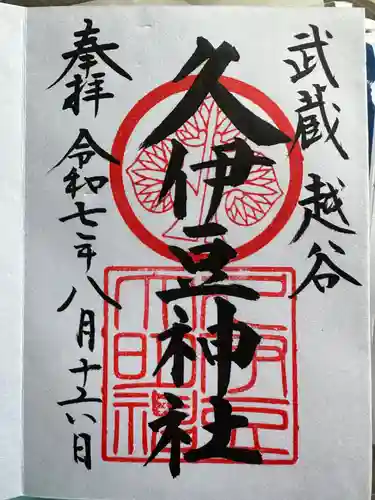 武蔵越谷
久伊豆神社
奉拝 令和七年八月十六日